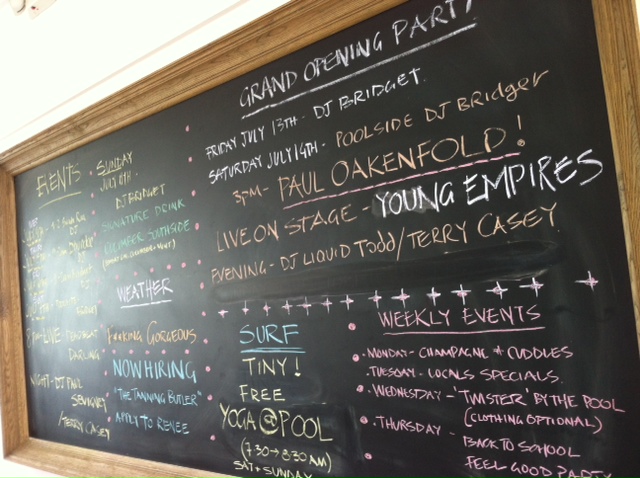 GRAND OPENING PARTY!
FRIDAY JULY 13TH - DJ BRIDGET.
SATURDAY JULY 14TH - POOLSIDE DJ Bridger
3PM - PAUL OAKENFOLD!
LIVE ON STAGE - YOUNG EMPIRES
EVENING - DJ LIQUID Todd/TERRY CASEY
EVENTS
LIVE
DARLING
NIGHT - DJ PAUL
/TERRY CASEY
SUNDAY
DJ BRIDGET
SIGNATURE DRINK
CUCUMBER SOUTHSIDE
WEATHER
GORGEOUS
NOW HIRING
"THE TANNING BUTLER"
APPLY TO RENEE
SURF
TINY!
FREE
YOGA @ POOL
(7:30 → 8:30 AM)
SAT + SUNDAY
WEEKLY EVENTS
MONDAY - CHAMPAGNE + CUDDLES
TUESDAY - LOCALS SPECIALS.
WEDNESDAY - 'TWISTER' BY THE POOL
(CLOTHING OPTIONAL)
THURSDAY - BACK TO SCHOOL
FEEL GOOD PARTY